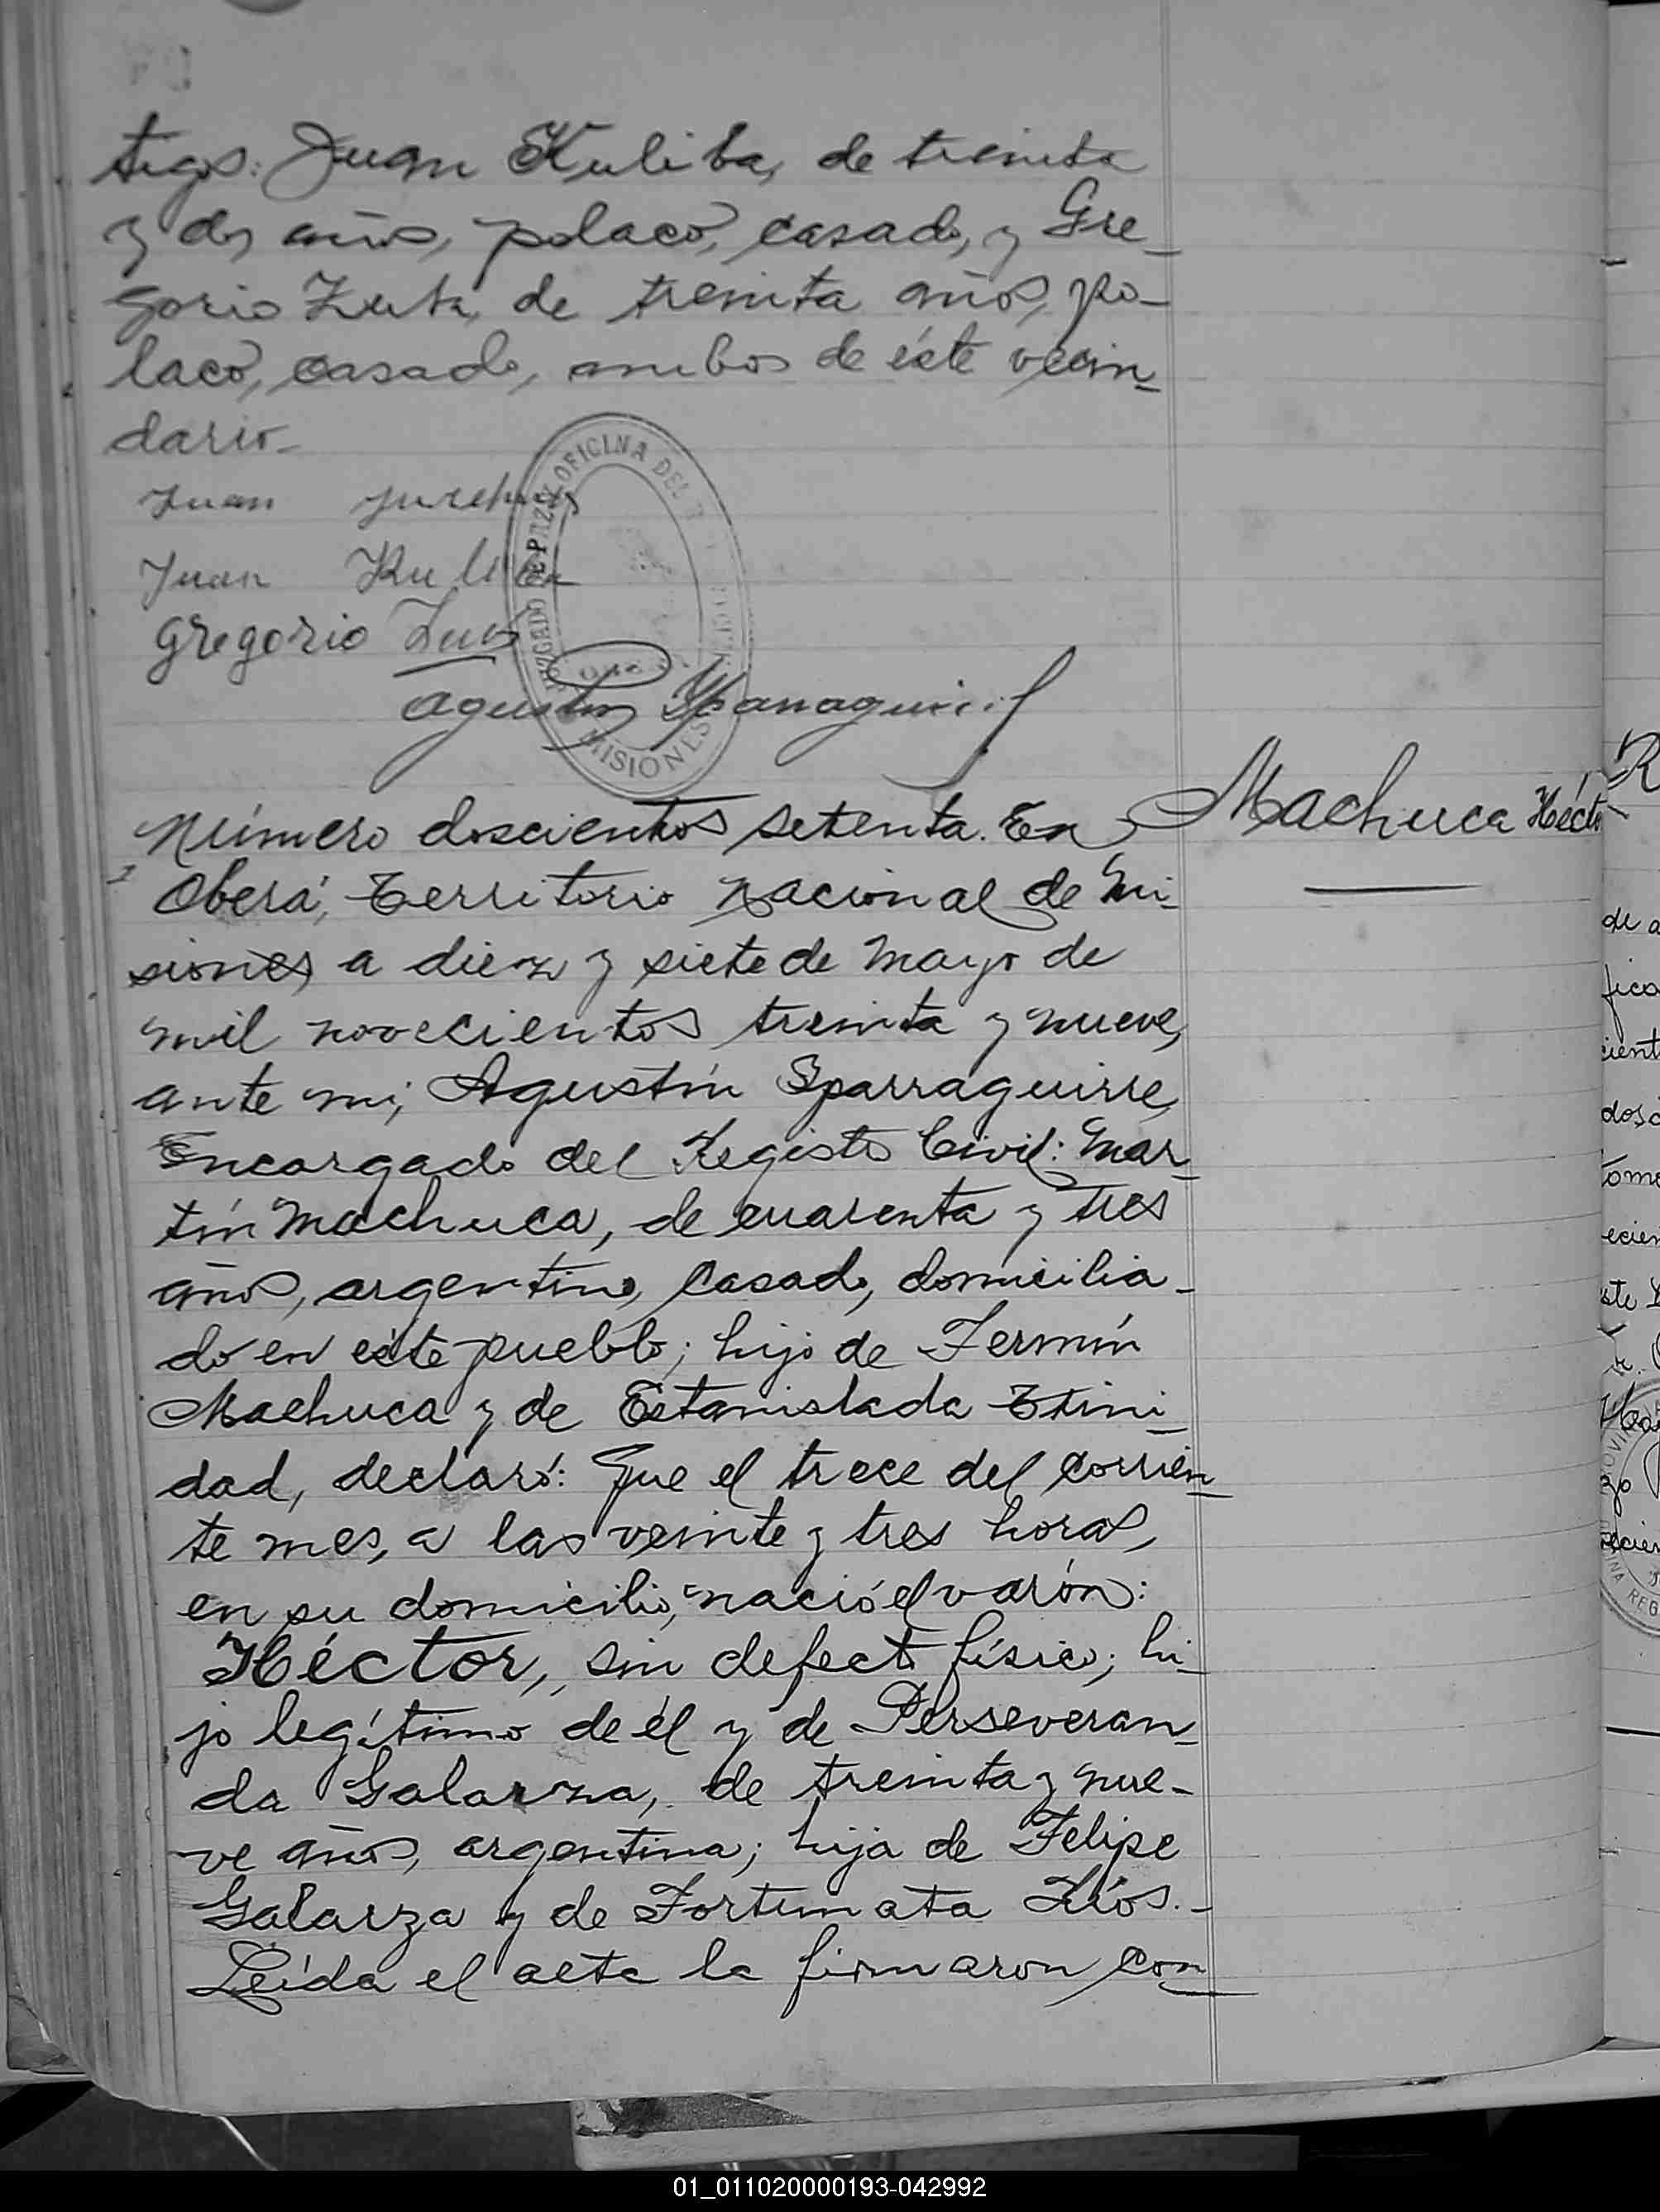 tigos: Juan Kuliba, de treinta
y dos años, polaco, casado, y Gre-
gorio Zuk, de treinta años, po-
laco, casado, ambos de éste vecin-
dario-
Juan
Juan Kuliba
Gregorio Zuk
JUZGADO DE PAZ Y OFICINA DEL
MISIONES
Agustín Yparraguirre
Número doscientos setenta. En
Machuca Héctor
Oberá, Territorio Nacional de Mi-
siones a diez y siete de Mayo de
mil novecientos treinta y nueve,
ante mi, Agustín Yparraguirre,
Encargado del Registro Civil: Mar-
tín Machuca, de cuarenta y tres
años, argentino, casado, domicilia-
do en éste pueblo; hijo de Fermín
Machuca y de Estanislada Trini-
dad, declaró: Que el trece del corrien-
te mes, a las veinte y tres horas,
en su domicilio, nació el varón:
Héctor, sin defecto físico; hi-
jo legítimo de él y de Perseveran-
da Galarza, de treinta y nue-
ve años, argentina; hija de Felipe
Galarza y de Fortunata Ríos.-
Leída el acta la firmaron con
01_011020000193-042992